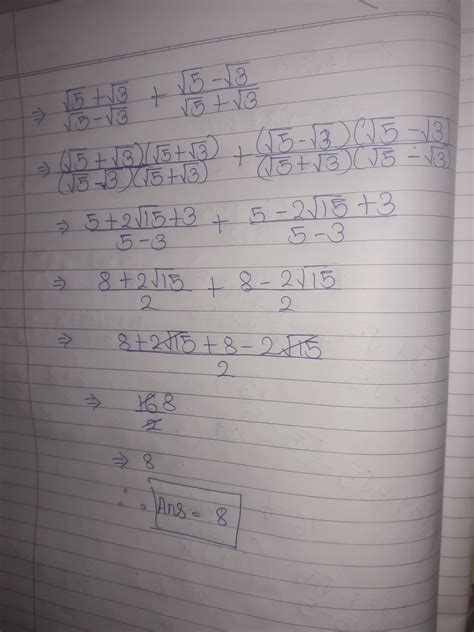 ⇒ (√5 + √3)/(√5 - √3) + (√5 - √3)/(√5 + √3)
⇒ (√5 + √3)(√5 + √3)/(√5 - √3)(√5 + √3) + (√5 - √3)(√5 - √3)/(√5 + √3)(√5 - √3)
⇒ (5 + 2√15 + 3)/(5 - 3) + (5 - 2√15 + 3)/(5 - 3)
⇒ (8 + 2√15)/2 + (8 - 2√15)/2
⇒ (8 + 2√15 + 8 - 2√15)/2
⇒ 16 8/2
⇒ 8
∴ Ans = 8